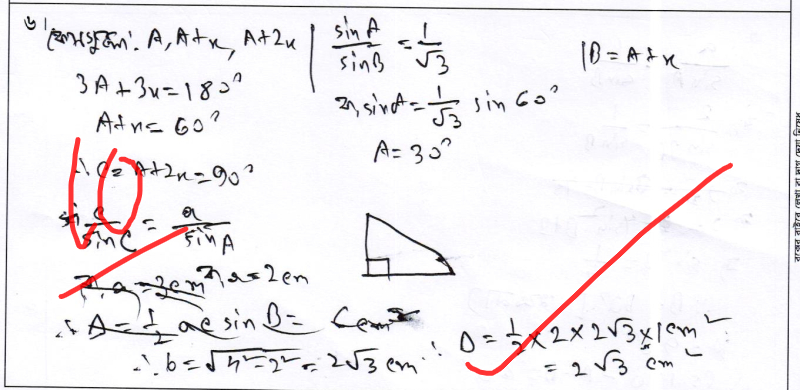 ৬।
কোণগুলো: A, A+x, A+2x
3A+3x=180°
A+x=60°
∴ C= A+2x=90°
c/sinC = a/sinA
বা, a=2cm
∴ A=1/2 ac sin B= 6cm²
∴ b=√4²-2²=2√3 cm
sinA/sinB = 1/√3
বা, sinA=1/√3 sin 60°
A=30°
B=A+x
∴ Δ=1/2×2×2√3×1cm²
=2√3 cm²